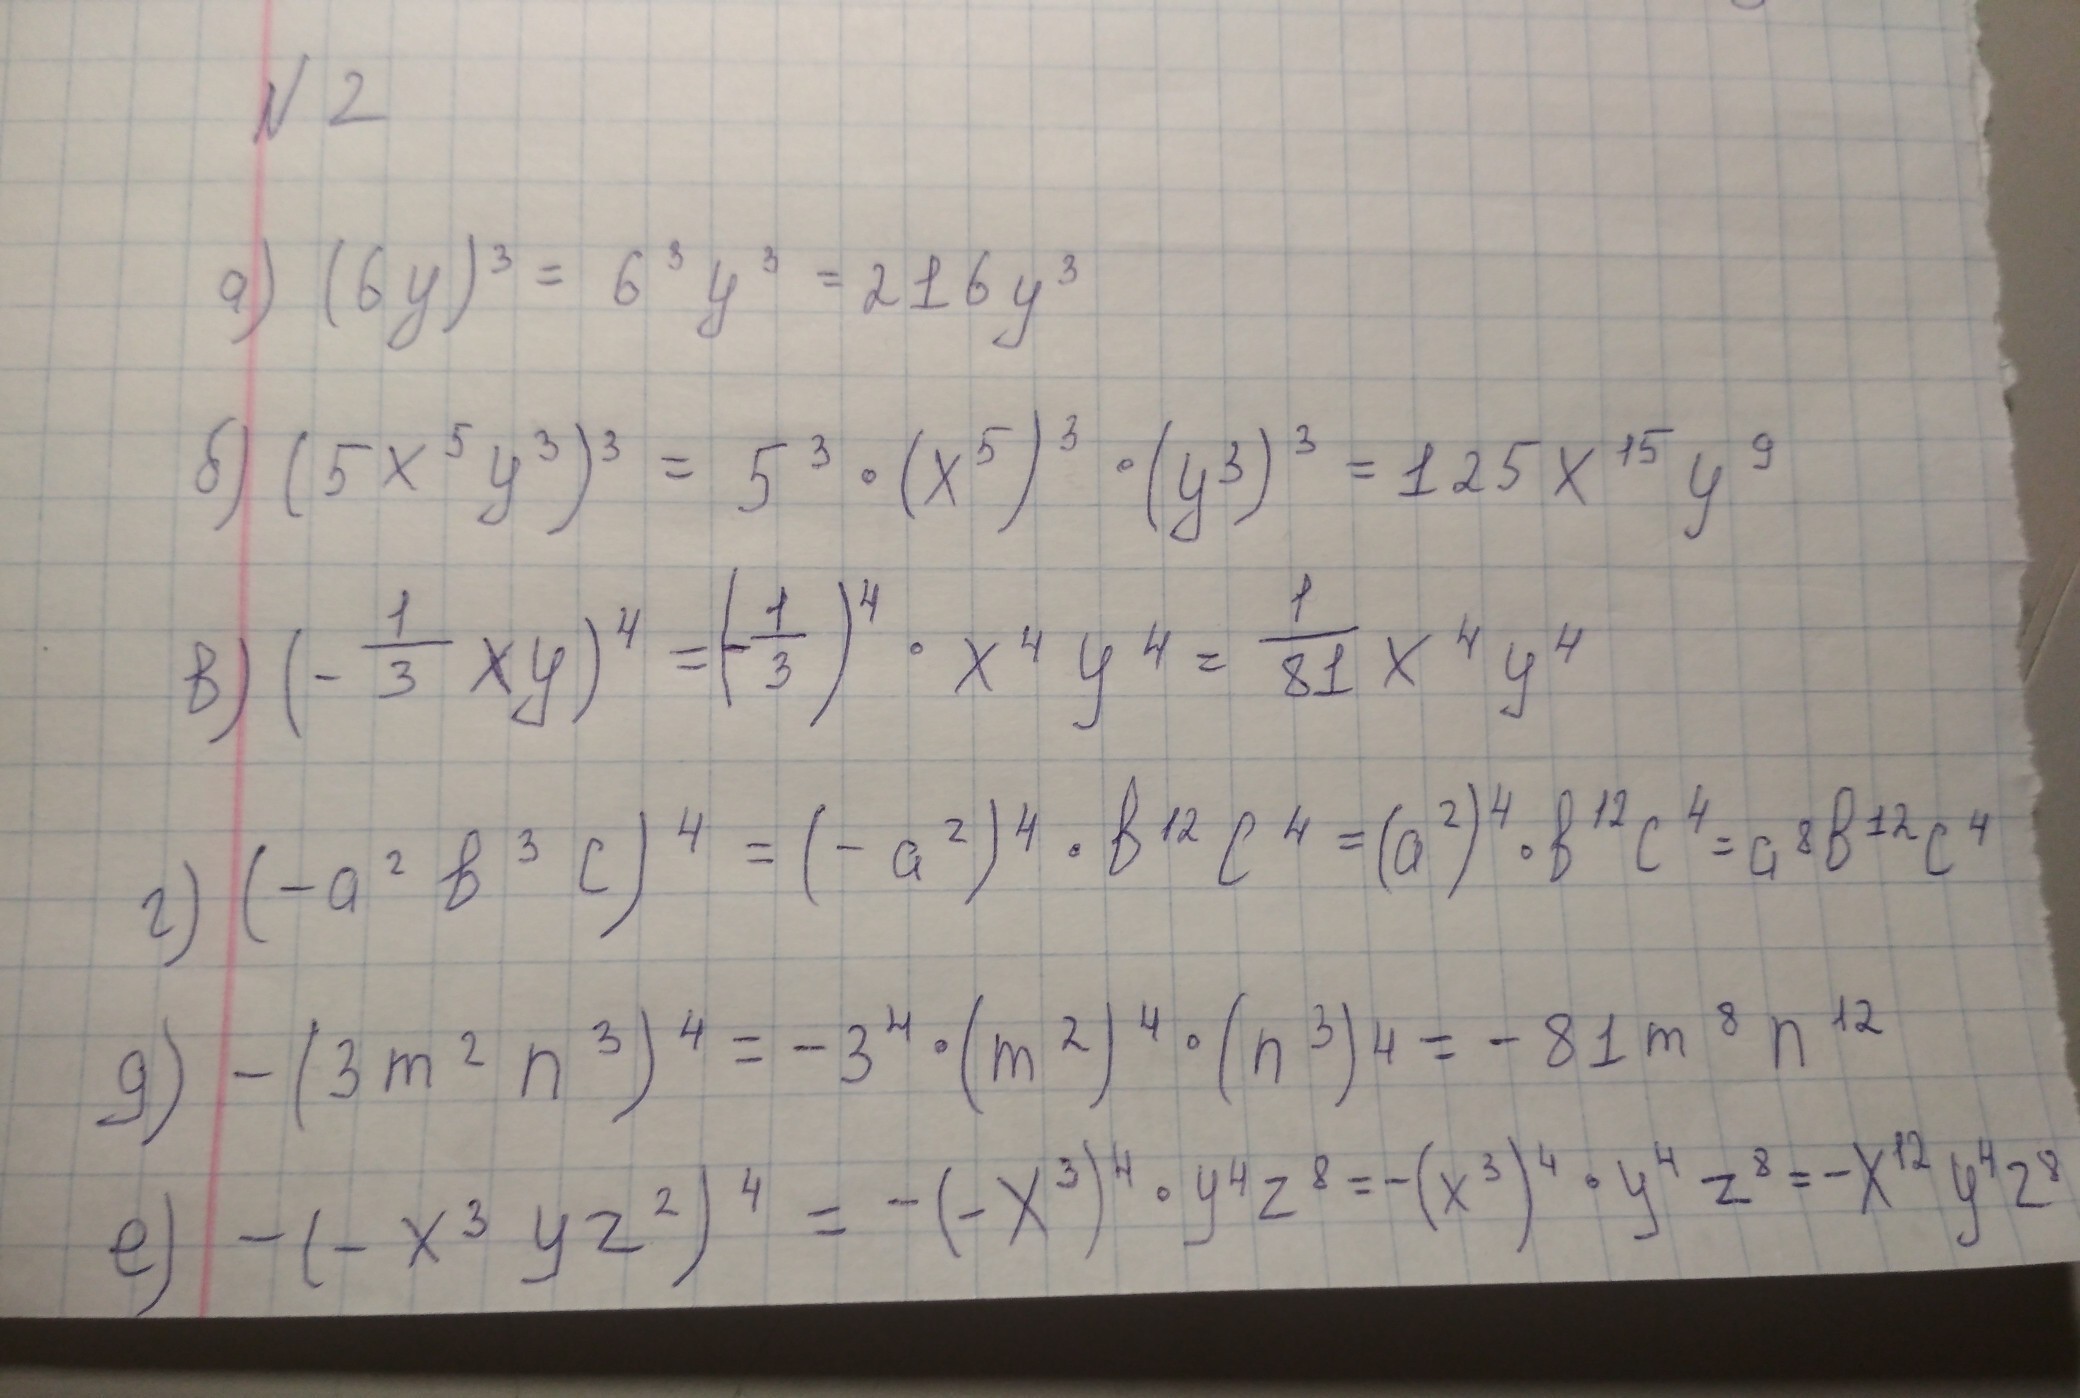 N 2
а) (6y)³ = 6³y³ = 216y³
б) (5x⁵y³)³ = 5³ · (x⁵)³ · (y³)³ = 125x¹⁵y⁹
в) (-1/3 xy)⁴ = (-1/3)⁴ · x⁴y⁴ = 1/81 x⁴y⁴
г) (-a²b³c)⁴ = (-a²)⁴ · b¹²c⁴ = (a²)⁴ · b¹²c⁴ = a⁸b¹²c⁴
д) -(3m²n³)⁴ = -3⁴ · (m²)⁴ · (n³)4 = -81m⁸n¹²
е) -(-x³yz²)⁴ = -(-x³)⁴ · y⁴z⁸ = -(x³)⁴ · y⁴z⁸ = -x¹²y⁴z⁸